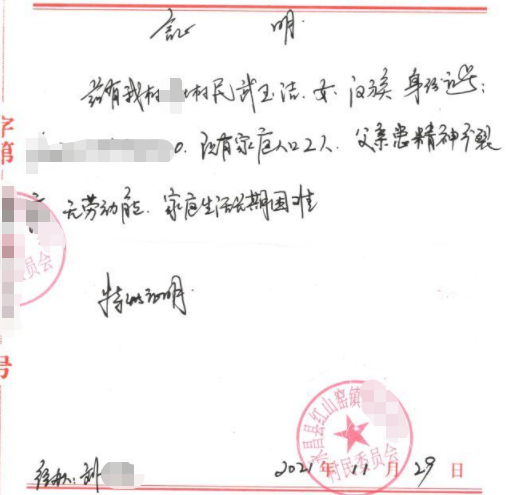 证 明
兹有我村 村民武玉洁、女、汉族 身份证号:
0. 现有家庭人口2人、父亲患精神分裂
无劳动能、家庭生活长期困难
特此证明
字第
号
委员会
永昌县红山窑镇
村民委员会
经办人:刘
2021年11月29日